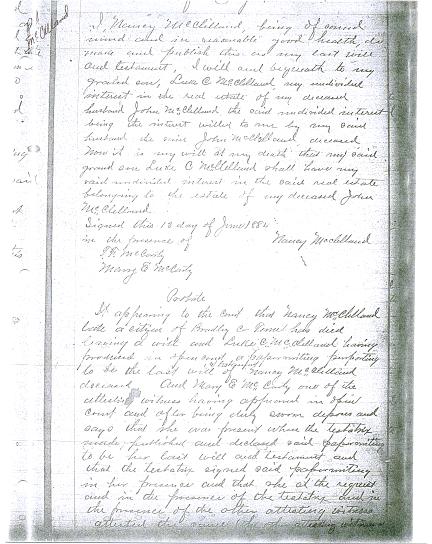 McClelland
I, Nancy McClelland, being of sound
mind and in reasonable good health, do
make and publish this as my last will
and testament, I will and bequeath to my
grand son, Luke C. McClelland my undivided
interest in the real estate of my deceased
husband John McClelland the said undivided interest
being the interest willed to me by my said
husband John McClelland deceased
Now it is my will at my death that my said
grand son Luke C McClelland shall have my
said undivided interest in the said real estate
belonging to the estate of my deceased John
McClelland.
Signed this 12 day of June 1884
in the presence of Nancy McClelland
Mary E McCarty
Probate
It appearing to the Court that Nancy McClelland
late a citizen of Bradley C Tenn has died
leaving a will and Luke C. McClelland having
produced in open court a paperwriting purporting
to be the last will of Nancy McClelland
deceased And Mary E McCarty one of the
attesting witness having appeared in open
Court and after being duly sworn deposes and
says that she was present when the testatrix
made published and declared said paperwriting
to be her last will and testament and
that the testatrix signed said paperwriting
in her presence and that she at the request
and in the presence of the testatrix and in
the presence of the other attesting witness
attested the same by attesting witness